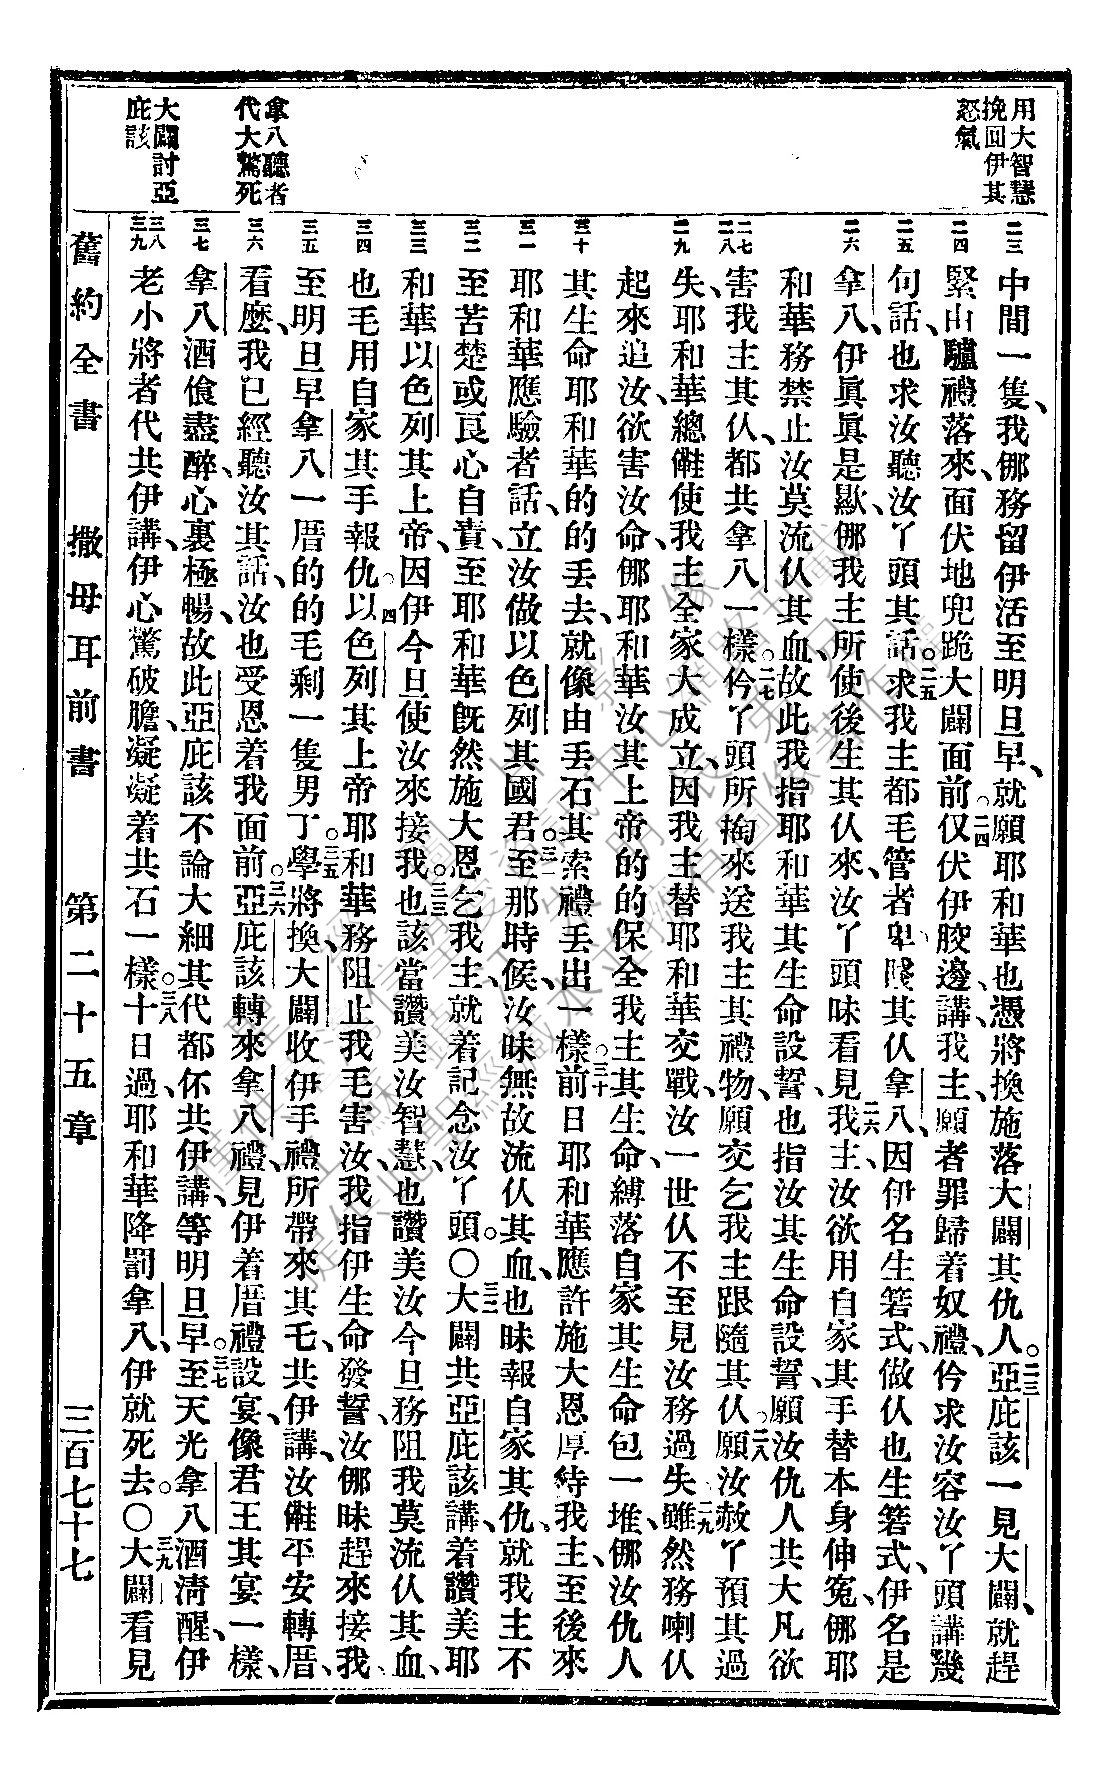 用大智慧
挽囘伊其
怒氣
拿八聽者
代大驚死
大闢討亞
庇該
二三
二四
二五
二六
二七
二八
二九
三十
三一
三二
三三
三四
三五
三六
三七
三八
三九
中間一隻、我㑚務留伊活至明旦早、就願耶和華也憑將換施落大闢其仇人。二三亞庇該一見大闢、就趕
緊由驢禮落來、面伏地兜跪大闢面前。二四仅伏伊骹邊、講、我主、願者罪歸着奴禮、仱求汝容汝丫頭講幾
句話、也求汝聽汝丫頭其話。二五求我主都毛管者卑賤其仈拿八、因伊名生箬式、做仈也生箬式、伊名是
拿八、伊眞眞是歞、㑚我主所使後生其仈來、汝丫頭昧看見。二六我主、汝欲用自家其手替本身伸寃、㑚耶
和華務禁止汝莫流仈其血、故此我指耶和華其生命設誓、也指汝其生命設誓、願汝仇人共大凡欲
害我主其仈、都共拿八一樣。二七仱丫頭所掏來送我主其禮物、願交乞我主跟隨其仈。二八願汝赦丫預其過
失、耶和華總𠆧使我主全家大成立、因我主替耶和華交戰、汝一世仈不至見汝務過失。二九雖然務喇仈
起來追汝、欲害汝命、㑚耶和華汝其上帝的的保全我主其生命、縛落自家其生命包一堆、㑚汝仇人
其生命、耶和華的的丟去、就像由丟石其索禮丟出一樣。三十前日耶和華應許施大恩厚待我主、至後來
耶和華應驗者話、立汝做以色列其國君。三一至那時候、汝昧無故流仈其血、也昧報自家其仇、就我主不
至苦楚或良心自責、至耶和華旣然施大恩乞我主、就着記念汝丫頭。○三二大闢共亞庇該講、着讚美耶
和華以色列其上帝、因伊今旦使汝來接我。三三也該當讚美汝智慧、也讚美汝今旦務阻我莫流仈其血、
也毛用自家其手報仇。三四以色列其上帝耶和華務阻止我毛害汝、我指伊生命發誓、汝㑚昧趕來接我、
至明旦早拿八一厝的的毛剩一隻男丁。三五學將換、大闢收伊手禮、所帶來其乇、共伊講、汝𠆧平安轉厝、
看麽、我已經聽汝其話、汝也受恩着我面前。三六亞庇該轉來拿八禮、見伊着厝禮設宴、像君王其宴一樣、
拿八酒飧盡醉、心裏極暢、故此亞庇該不論大細其代都伓共伊講、等明旦早。三七至天光拿八酒淸醒、伊
老小將者代共伊講、伊心驚破膽、凝凝着共石一樣。三八十日過、耶和華降罰拿八、伊就死去○三九大闢看見
舊約全書 撒母耳前書 第二十五章 三百七十七